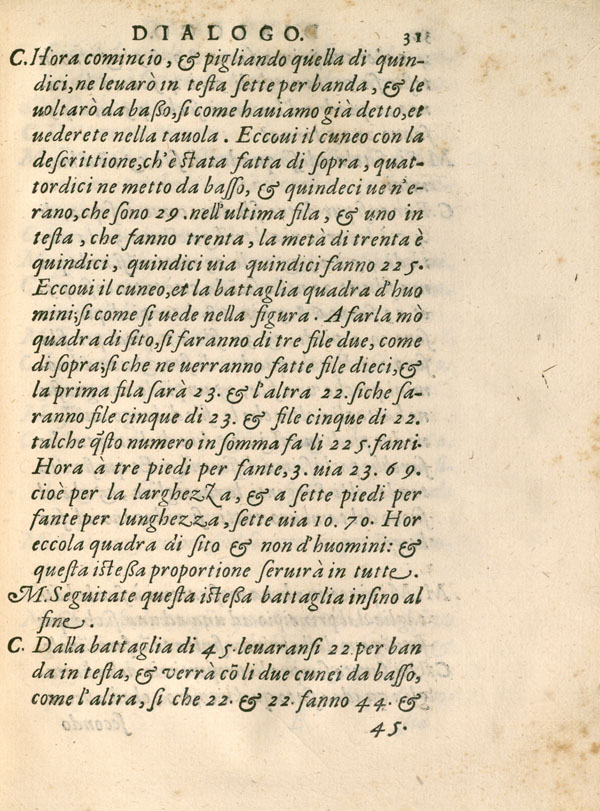 DIALOGO. 31
C. Hora comincio, & pigliando quella di quin-
dici, ne leuarò in testa sette per banda, & le
uoltarò da baßo, si come hauiamo già detto, et
uederete nella tauola. Eccoui il cuneo con la
descrittione, ch'è stata fatta di sopra, quat-
tordici ne metto da basso, & quindeci ue n'e-
rano, che sono 29. nell'ultima fila, & uno in
testa, che fanno trenta, la metà di trenta è
quindici, quindici uia quindici fanno 225.
Eccoui il cuneo, et la battaglia quadra d'huo
mini; si come si uede nella figura. A farla mò
quadra di sito, si faranno di tre file due, come
di sopra; si che ne uerranno fatte file dieci, &
la prima fila sarà 23. & l'altra 22. siche sa-
ranno file cinque di 23. & file cinque di 22.
talche q̃sto numero in somma fa li 225. fanti.
Hora à tre piedi per fante, 3. uia 23. 69.
cioè per la larghezza, & a sette piedi per
fante per lunghezza, sette uia 10. 70. Hor
eccola quadra di sito & non d'huomini: &
questa isteßa proportione seruirà in tutte.
M. Seguitate questa isteßa battaglia insino al
fine.
C. Dalla battaglia di 45. leuaransi 22. per ban
da in testa, & verrà cõ li due cunei da basso,
come l'altra, si che 22. & 22. fanno 44. &
45.